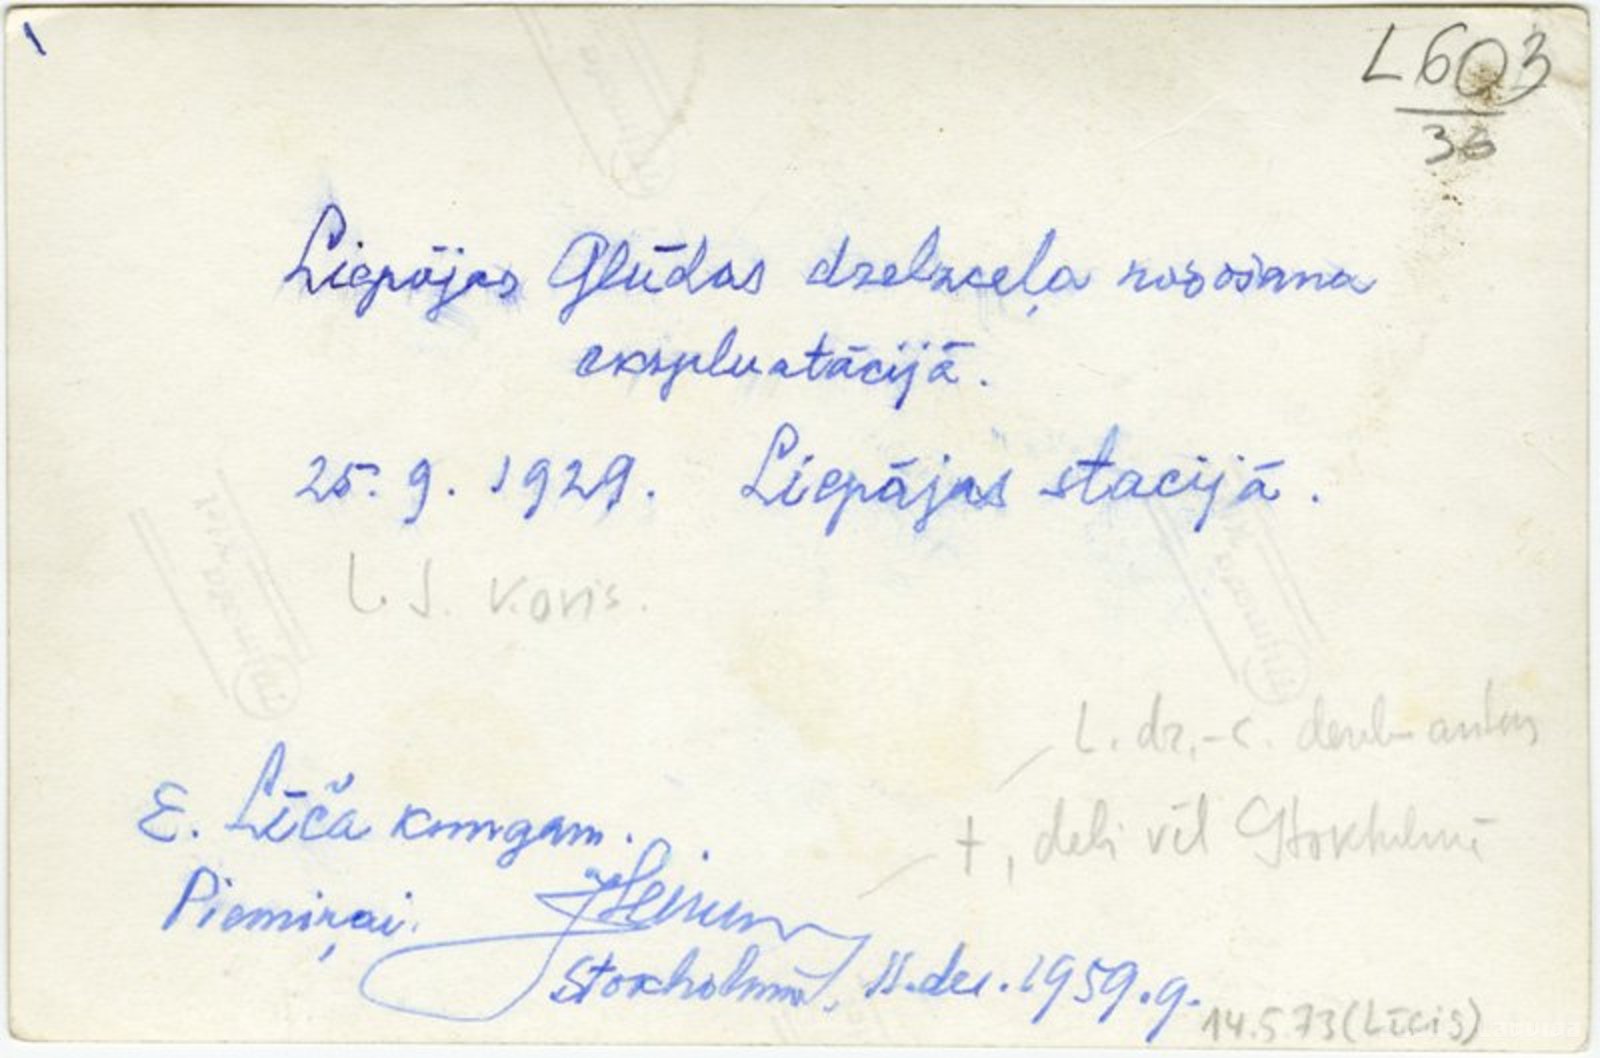 L603
36
Liepājas Glūdas dzelzceļa nodošana
ekspluatācijā.
25. 9. 1929. Liepājas stacijā.
L. J. Kovis.
L. dz.-c. darb-
E. Līča kungam.
+, deli vēl Stokholmā
Piemiņai.
Stokholmā, 11. dec. 1959. g.
14.5.73 (Līcis)